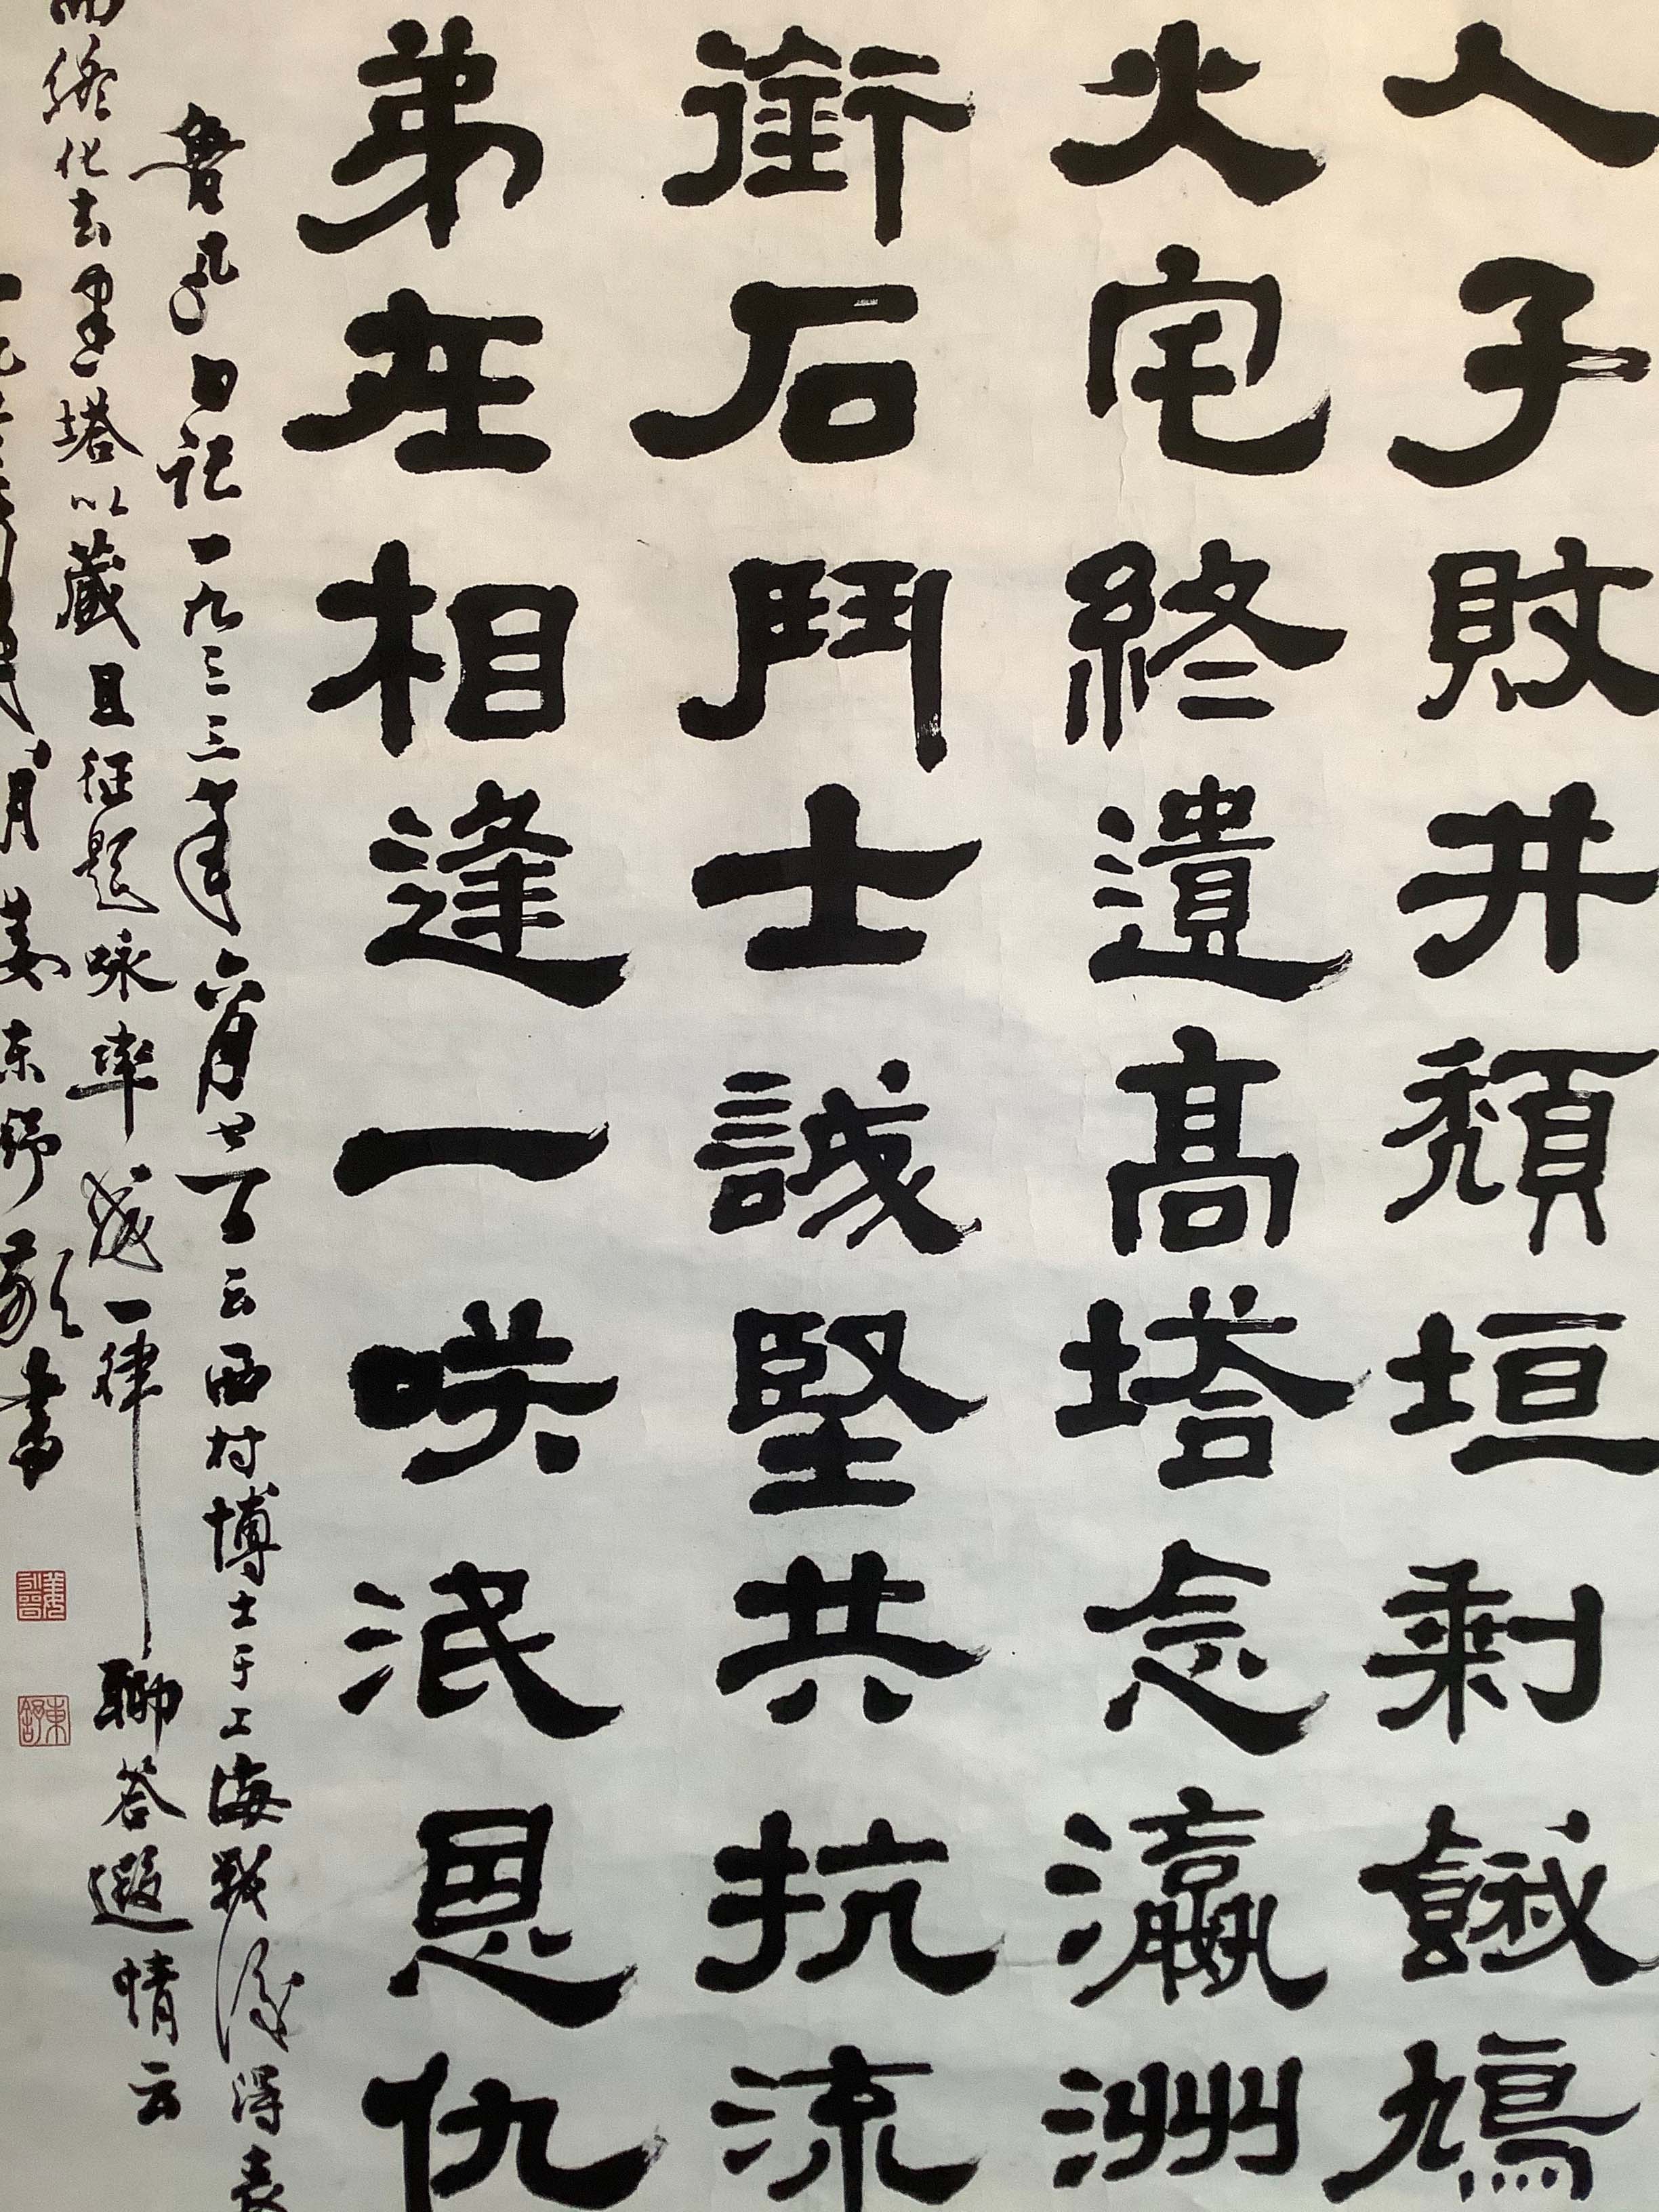 人子敗井頹垣剩餓鳩
火宅終遺高塔念瀛洲
銜石鬥士誠堅共抗流
弟在相逢一咲泯恩仇
魯迅日记一九三三年六月廿一日云西村博士于上海戰後得喪
而終化去建塔以藏且征題咏率成一律聊答遐情云
月姜东舒敬書
東舒